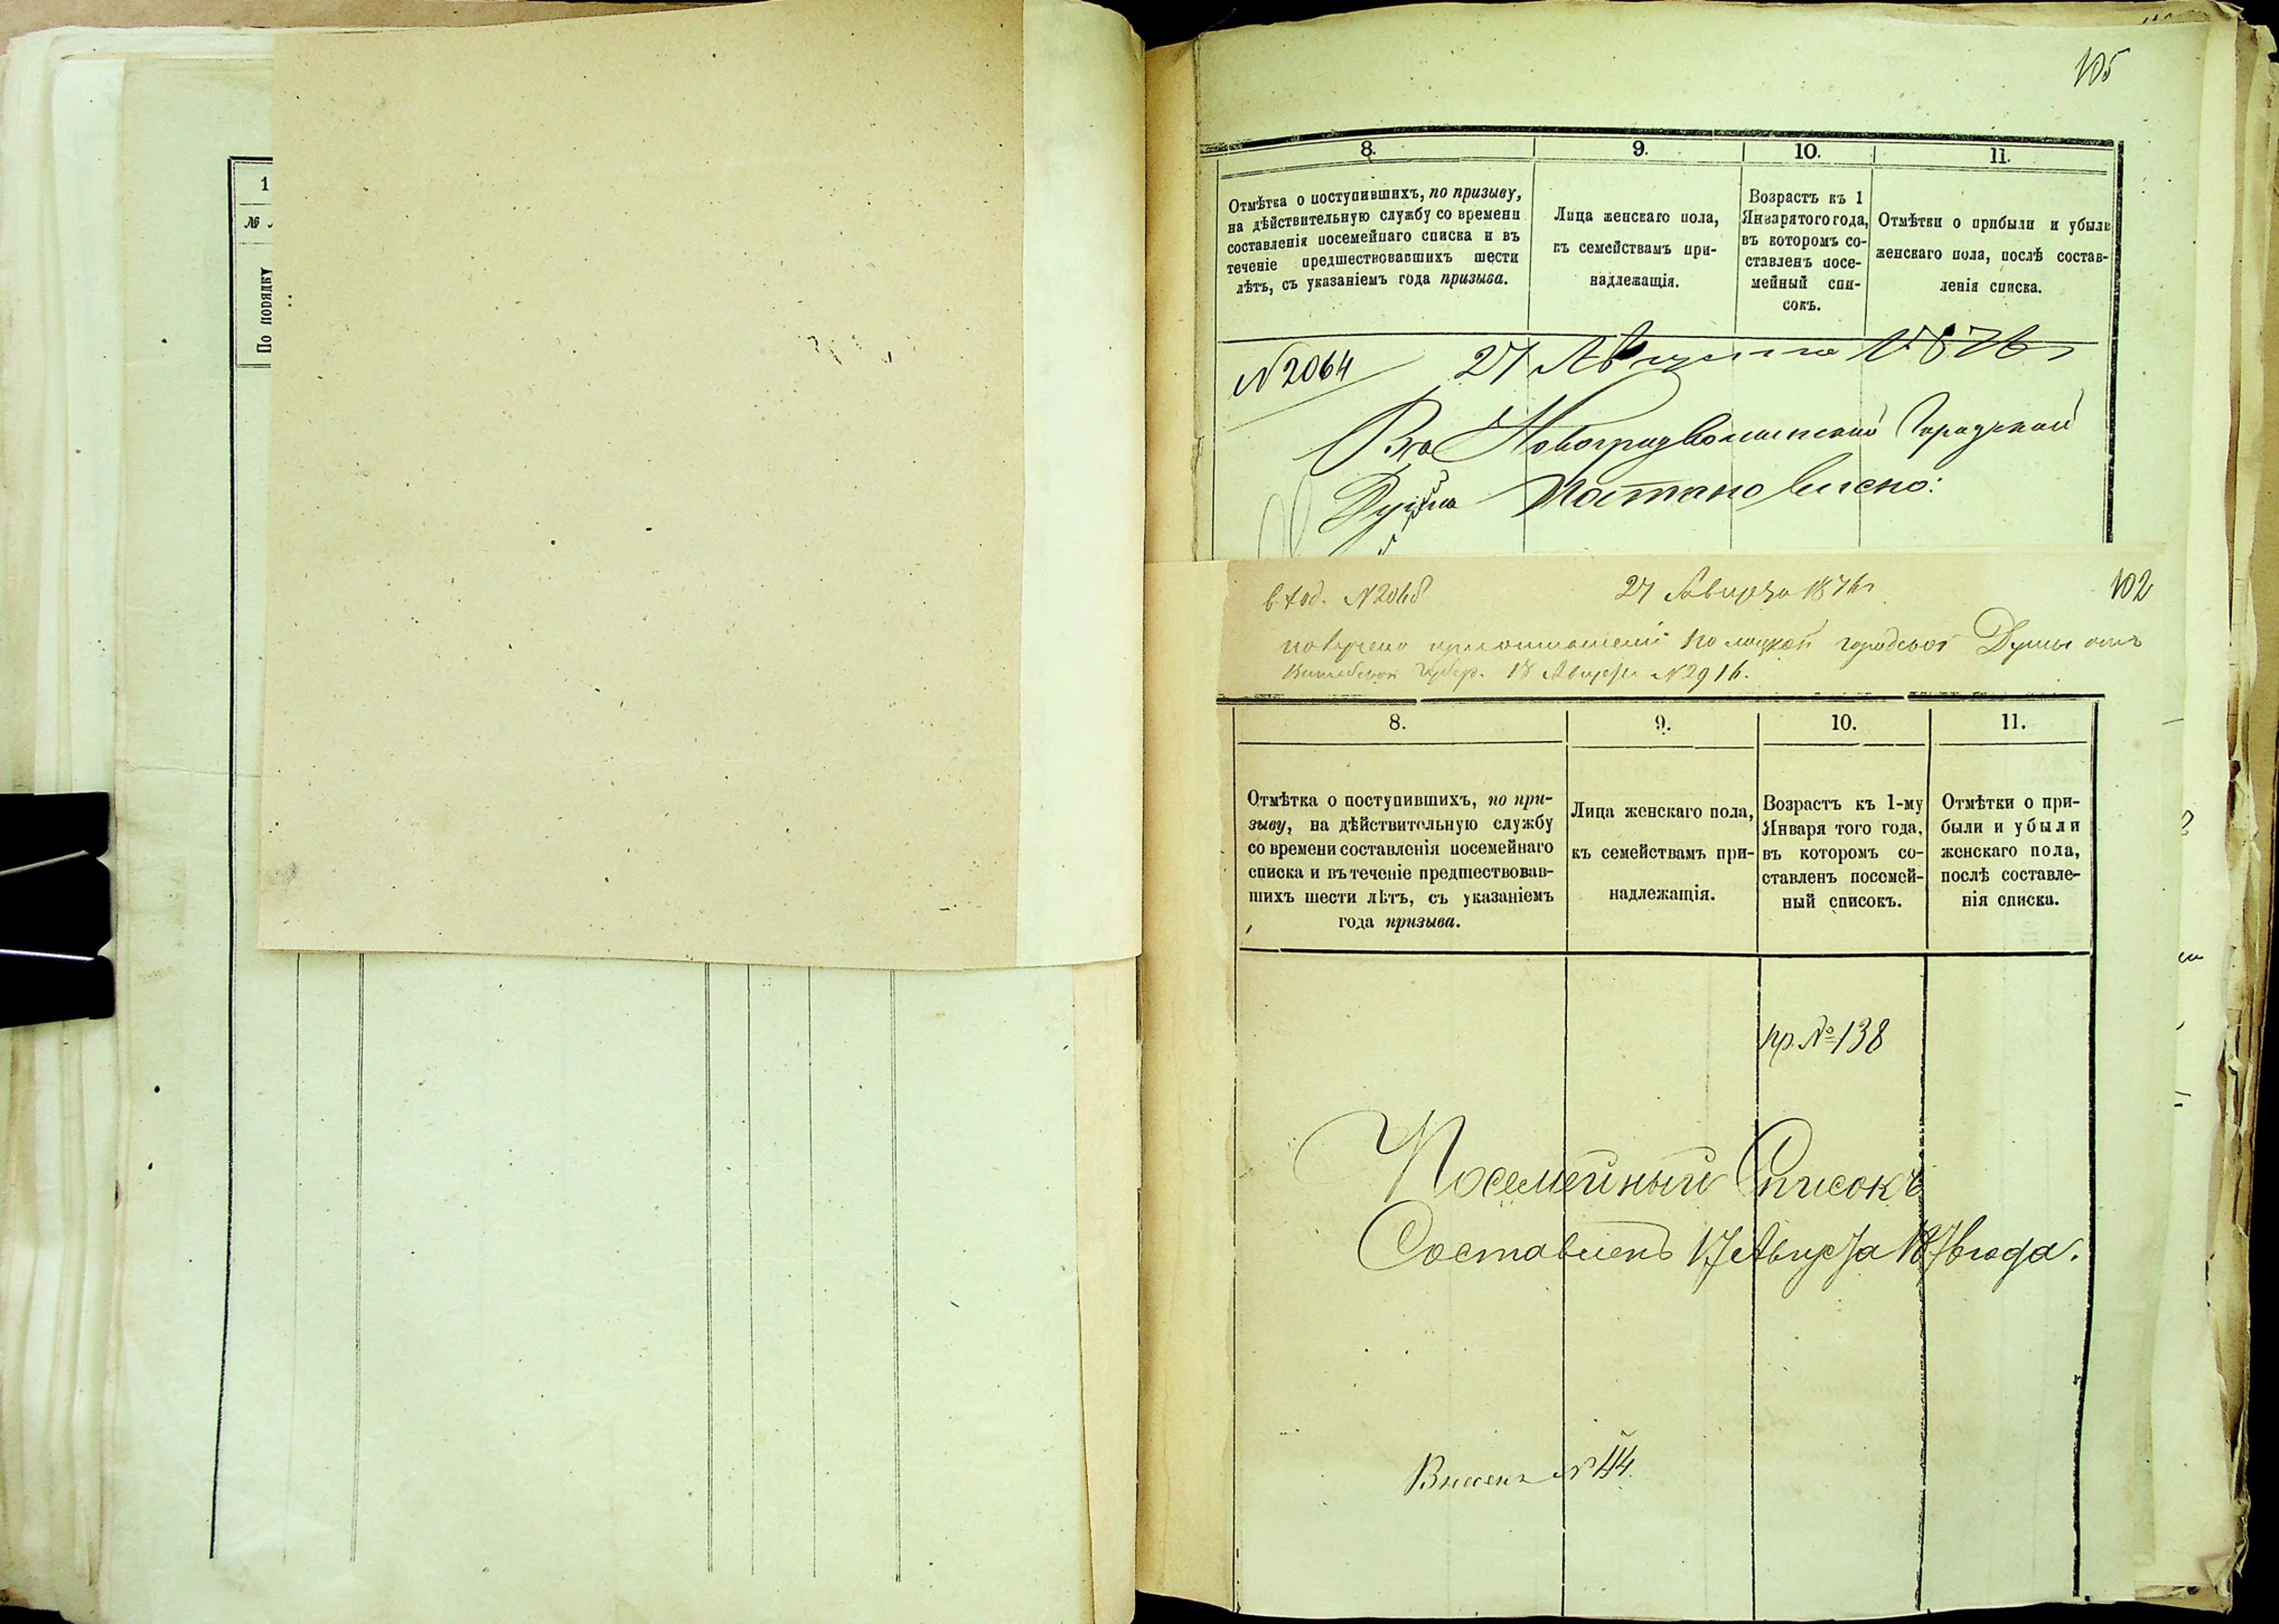 1
№
По порядку
105
8.
9.
10.
11.
Отмѣтка о поступившихъ, по призыву,
на дѣйствительную службу со времени
составленія посемейнаго списка и въ
теченіе предшествовавшихъ шести
лѣтъ, съ указаніемъ года призыва.
Лица женскаго пола,
къ семействамъ при-
надлежащія.
Возрастъ къ 1
Января того года,
въ которомъ со-
ставленъ посе-
мейный спи-
сокъ.
Отмѣтки о прибыли и убыли
женскаго пола, послѣ состав-
ленія списка.
N 2064 27 Августа 1876 г
Городской
Постановлено:
вход. N 27 Августа 1876 г 102
Полоцкой городской Думы отъ
Витебской Губер. 18 Августа N 2916.
8.
9.
10.
11.
Отмѣтка о поступившихъ, по при-
зыву, на дѣйствительную службу
со времени составленія посемейнаго
списка и въ теченіе предшествовав-
шихъ шести лѣтъ, съ указаніемъ
года призыва.
Лица женскаго пола,
къ семействамъ при-
надлежащія.
Возрастъ къ 1-му
Января того года,
въ которомъ со-
ставленъ посемей-
ный списокъ.
Отмѣтки о при-
были и убыли
женскаго пола,
послѣ составле-
нія списка.
пр. № 138
Посемейный Списокъ
Составленъ 17 Августа 1876 года.
Внесенъ N 44.